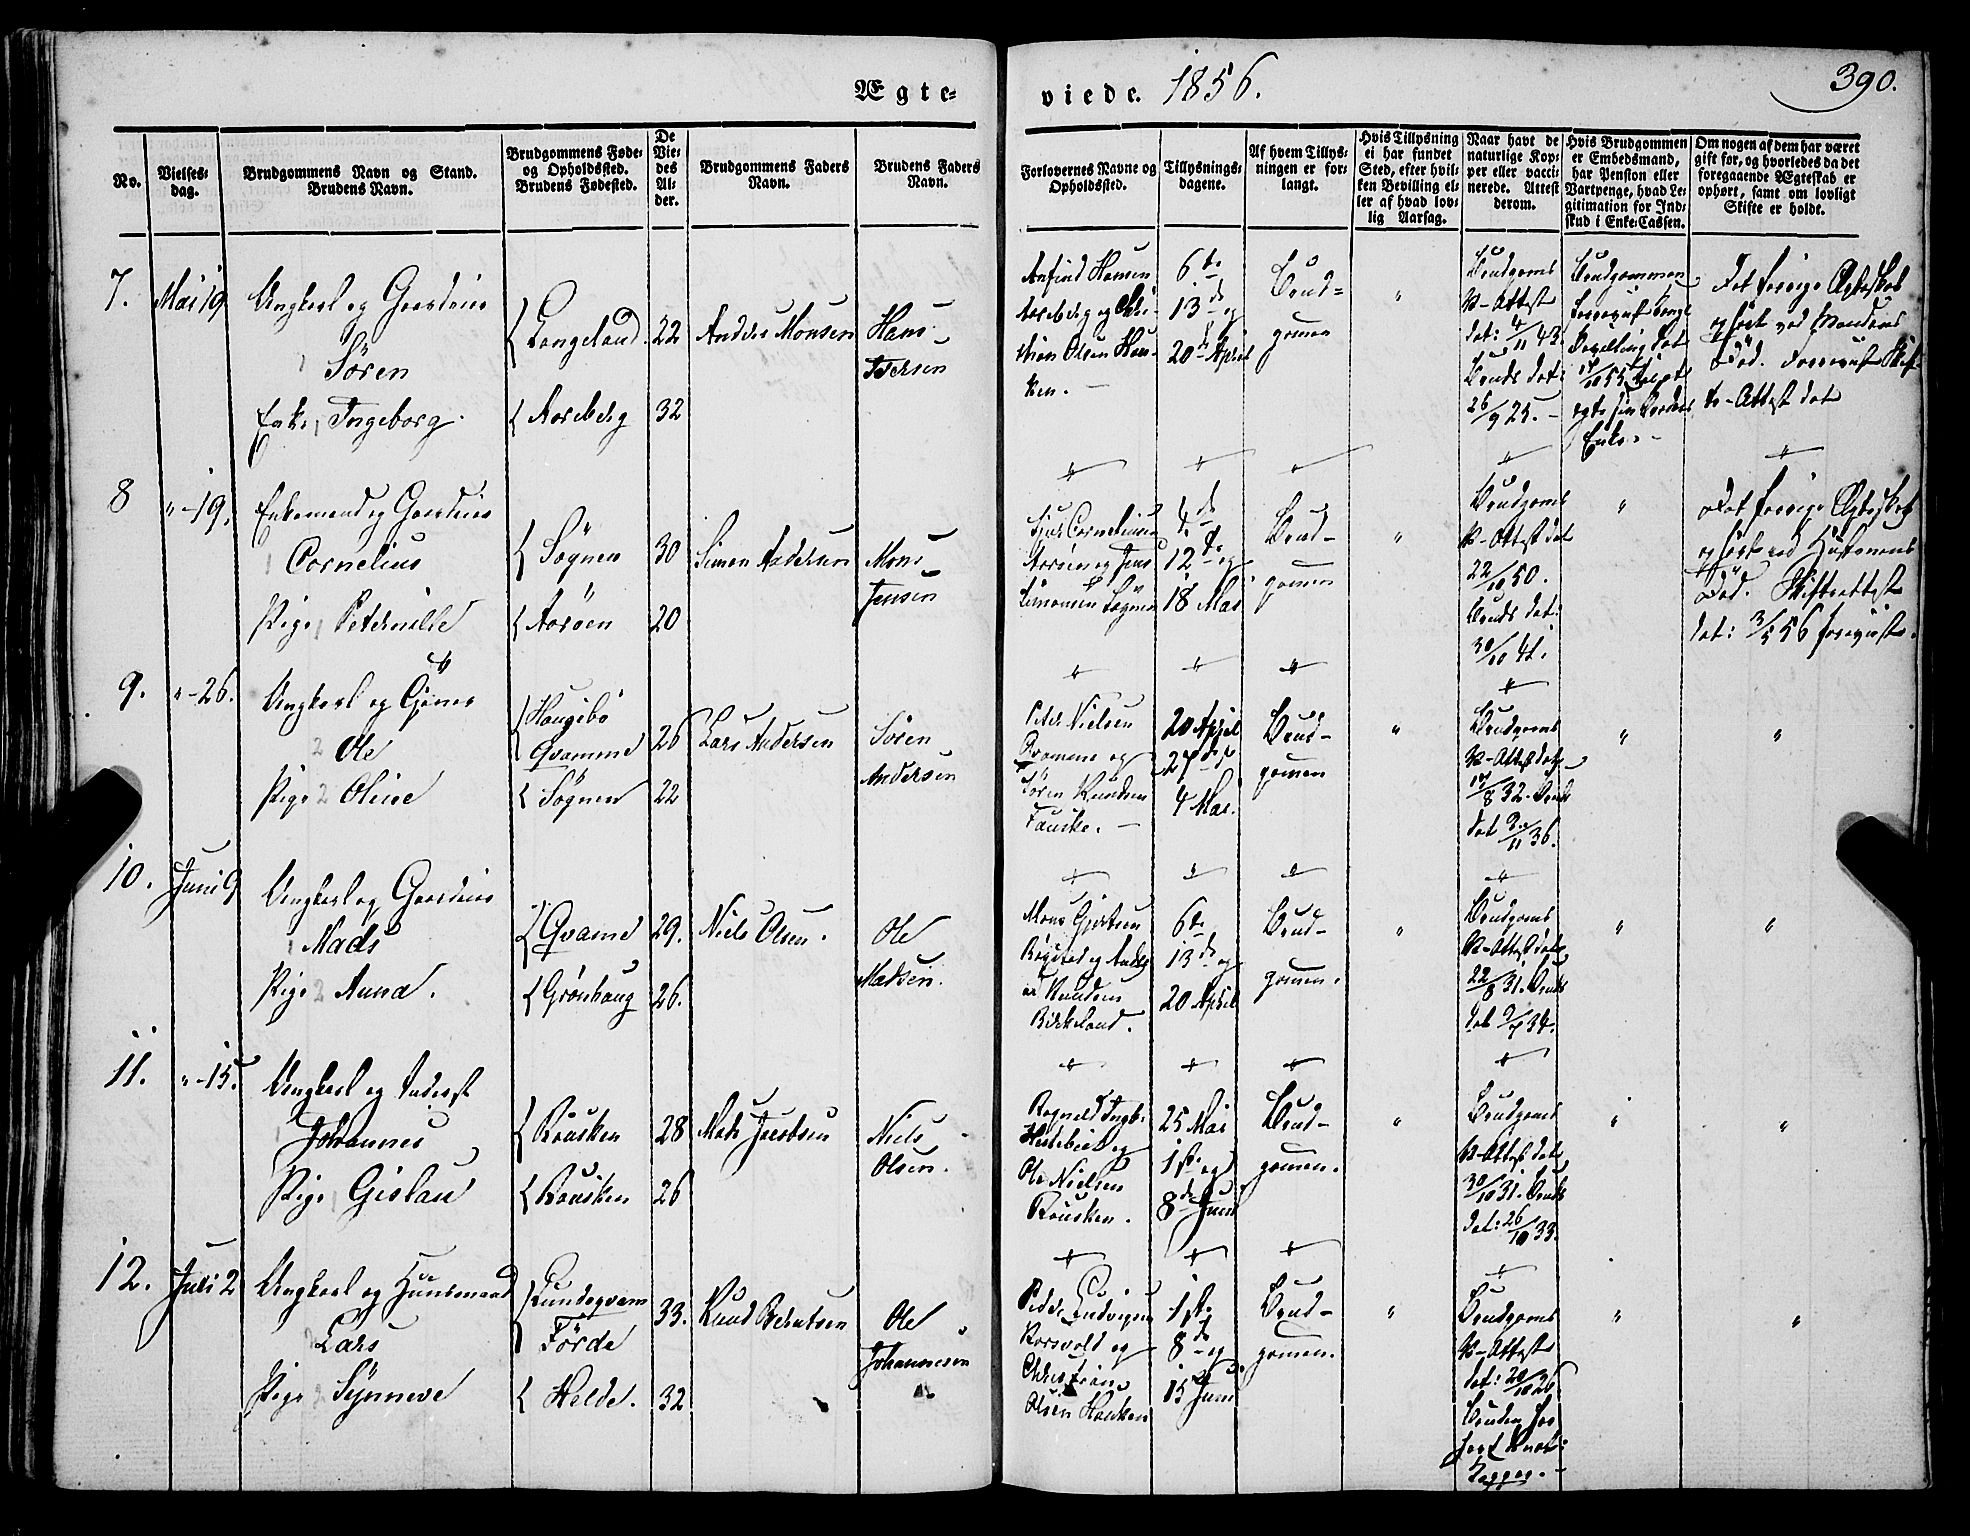 Ægte-
viede. 1856.
390.
No.
Vielses-
dag.
Brudgommens Navn og Stand.
Brudens Navn.
Brudgommens Føde-
og Opholdssted.
Brudens Fødested.
De
Vie-
des
Al-
der.
Brudgommens Faders
Navn.
Brudens Faders
Navn.
Forlovernes Navne og
Opholdssted.
Tillysnings-
dagene.
Af hvem Tillys-
ningen er for-
langt.
Hvis Tillysning
ei har fundet
Sted, efter hvil-
ken Bevilling el-
ler af hvad lov-
lig Aarsag.
Naar havt de
naturlige Kop-
per eller vacci-
nerede. Attest
derom.
Hvis Brudgommen
er Embedsmand,
har Pension eller
Vartpenge, hvad Le-
gitimation for Ind-
skud i Enke-Cassen.
Om nogen af dem har været
gift før, og hvorledes da det
foregaaende Ægteskab er
ophørt, samt om lovligt
Skifte er holdt.
7. Mai 19
Ungkarl og Gaardeier
Søren
Enke Ingeborg.
Langeland.
Aarsberg
22
32
Anders Monsen
Hans
Iversen
Anfind Hansen
Aarsberg og Chri-
stian Olsen Hau-
ken.
6te
13de og
20de April
Brud-
gomen
"
Brudgoms
V-Attest
dat: 4/11 43.
Bruds dat:
26/9 25.
Brudgommen
Enke.
Det forrige Ægteskab
ophört ved Mandens
Död. Forevist Skif-
te-Attest dat
8 "-19.
Enkemand og Gaardeier
Cornelius
Pige Peternille
Sögnen
Aaröen
30
20
Simon Andersen
Mons
Jensen
Aaröen og Jens
Simonsen Sögnen
4de
12te og
18 Mai
Brud-
gomen
"
Brudgoms
V-Attest dat
22/10 50.
Bruds dat:
30/10 41.
"
Det forrige Ægteskab
ophört ved Hustruens
Död. Skifteattest
dat: 3/5 56 forevist.
9. "-26.
Ungkarl og
Ole
Pige Oline
Haugebö
Qvamme
Sögnen
26
22
Lars Andersen
Sören
Andersen
Peter Nielsen
Qvamme og
Sören Knudsen
Fauske.
20 April
27de &
4 Mai.
Brud-
gomen
"
Brudgoms
V-Attest dat.
17/8 32. Bruds
"
"
10. Juni 9
Ungkarl og Gaardeier
Mads
Pige Anna.
Qvame
Grönhaug
29.
26.
Niels Olsen.
Ole
Madsen.
Mons Gjertsen
Knudsen
Birkeland.
6te
13de og
20 April
Brud-
gomen.
"
Brudgoms
V-Attest dat.
22/8 31. Bruds
"
"
11. "-15.
Ungkarl og Inderst
Johannes
Pige Gislau
Rousken
Rousken
28
26
Mads Jacobsen
Niels
Olsen.
Ole Nielsen
Rousken.
25 Mai
1ste og
8de Juni
Brud-
gomen.
"
Brudgoms
V-Attest dat.
30/10 31. Bruds
dat: 26/10 33.
"
"
12. Juli 2
Ungkarl og Huusmand
Lars
Pige Synneve
Lundeqvam
Förde
Helde.
33.
32
Knud Berntsen
Ole
Johannesen
Peder Ludvigsen
Korsvold og
Christian
Olsen Hauken
1ste
8de og
15 Juni
Brud-
gomen.
"
Brudgoms
V-Attest
dat: 20/10 26.
Bruden har
havt Nat:
Kopper.
"
"